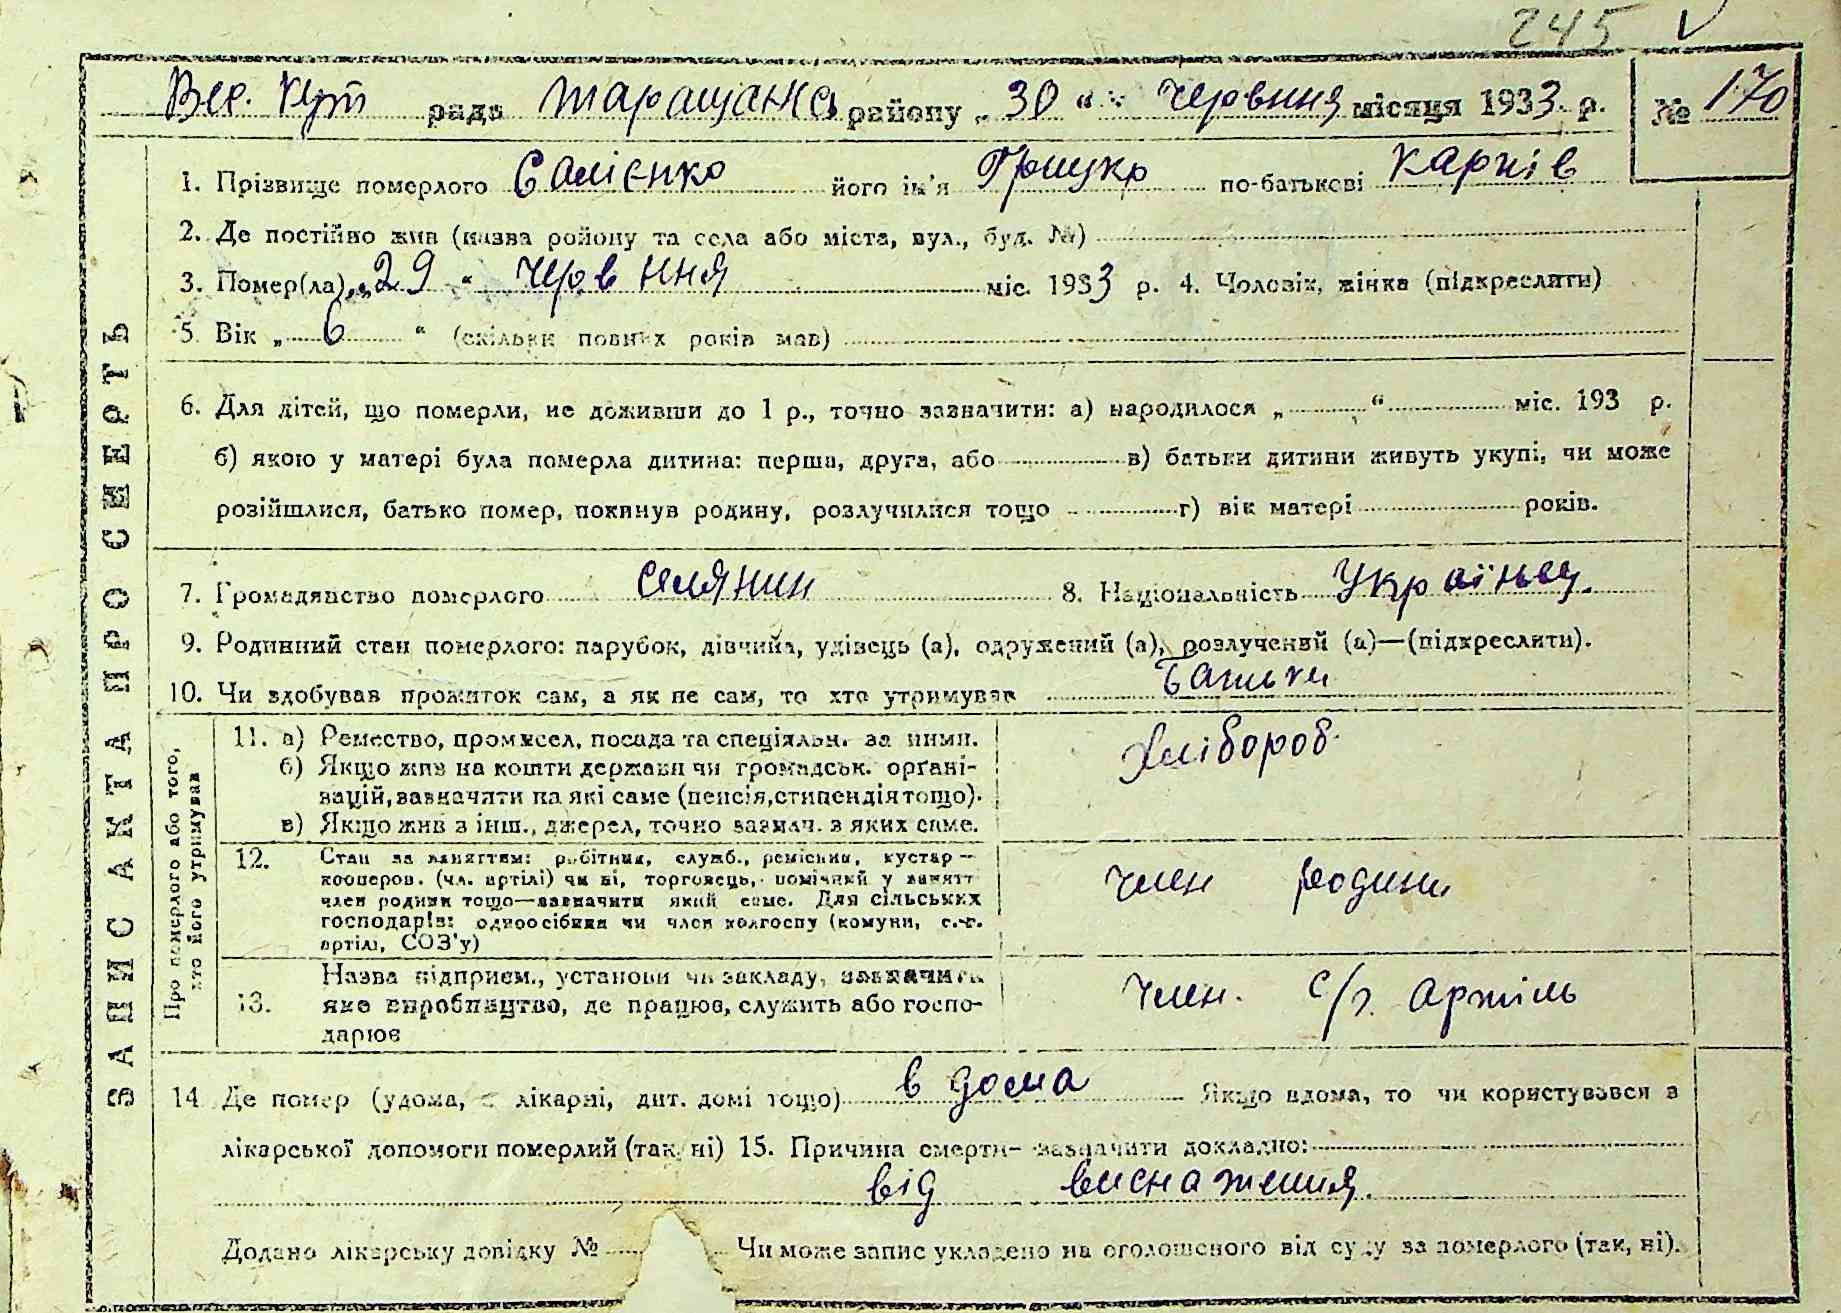 245 V
Вел. Кут рада Таращанс району „30“ червння місяця 1933 р. № 170
1. Прізвище померлого Салієнко його ім'я Грицко по-батькові Карпів
2. Де постійно жив (назва ройону та села або міста, вул., буд. №)
3. Помер(ла) „29“ червння міс. 1933 р. 4. Чоловік, жінка (підкреслити)
5. Вік „6“ (скільки повних років мав)
6. Для дітей, що померли, не доживши до 1 р., точно зазначити: а) народилося „ “ міс. 193 р.
б) якою у матері була померла дитина: перша, друга, або в) батьки дитини живуть укупі, чи може
розійшлися, батько помер, покинув родину, розлучилися тощо г) вік матері років.
7. Громадянство померлого селянин 8. Національність Українец.
9. Родинний стан померлого: парубок, дівчина, удівець (а), одружений (а), розлучений (а)—(підкреслити).
10. Чи здобував прожиток сам, а як не сам, то хто утримував батьки
ЗАПИС АКТА ПРО СМЕРТЬ
Про померлого або того,
хто його утримував
11. а) Ремество, промисел, посада та спеціяльн. за ними.
б) Якщо жив на кошти держави чи громадськ. органі-
зацій, зазначити на які саме (пенсія, стипендія тощо).
в) Якщо жив з інш., джерел, точно зазнач. з яких саме.
Хлібороб
12. Стан за заняттям: робітник, служб., ремісник, кустар—
кооперов. (чл. артілі) чи ні, торговець, помічний у занятт
член родини тощо—зазначити який саме. Для сільських
господарів: одноосібник чи член колгоспу (комуни, с.-г.
артілі, СОЗ'у)
член родини
13. Назва підприєм., установи чи закладу, зазначить
яке виробництво, де працює, служить або госпо-
дарює
член. с/г. артіль
14 Де помер (удома, в лікарні, дит. домі тощо) в дома Якщо вдома, то чи користувався з
лікарської допомоги померлий (так, ні) 15. Причина смерти- зазначити докладно:
від виснаження.
Додано лікарську довідку № Чи може запис укладено на оголошеного від суду за померлого (так, ні).